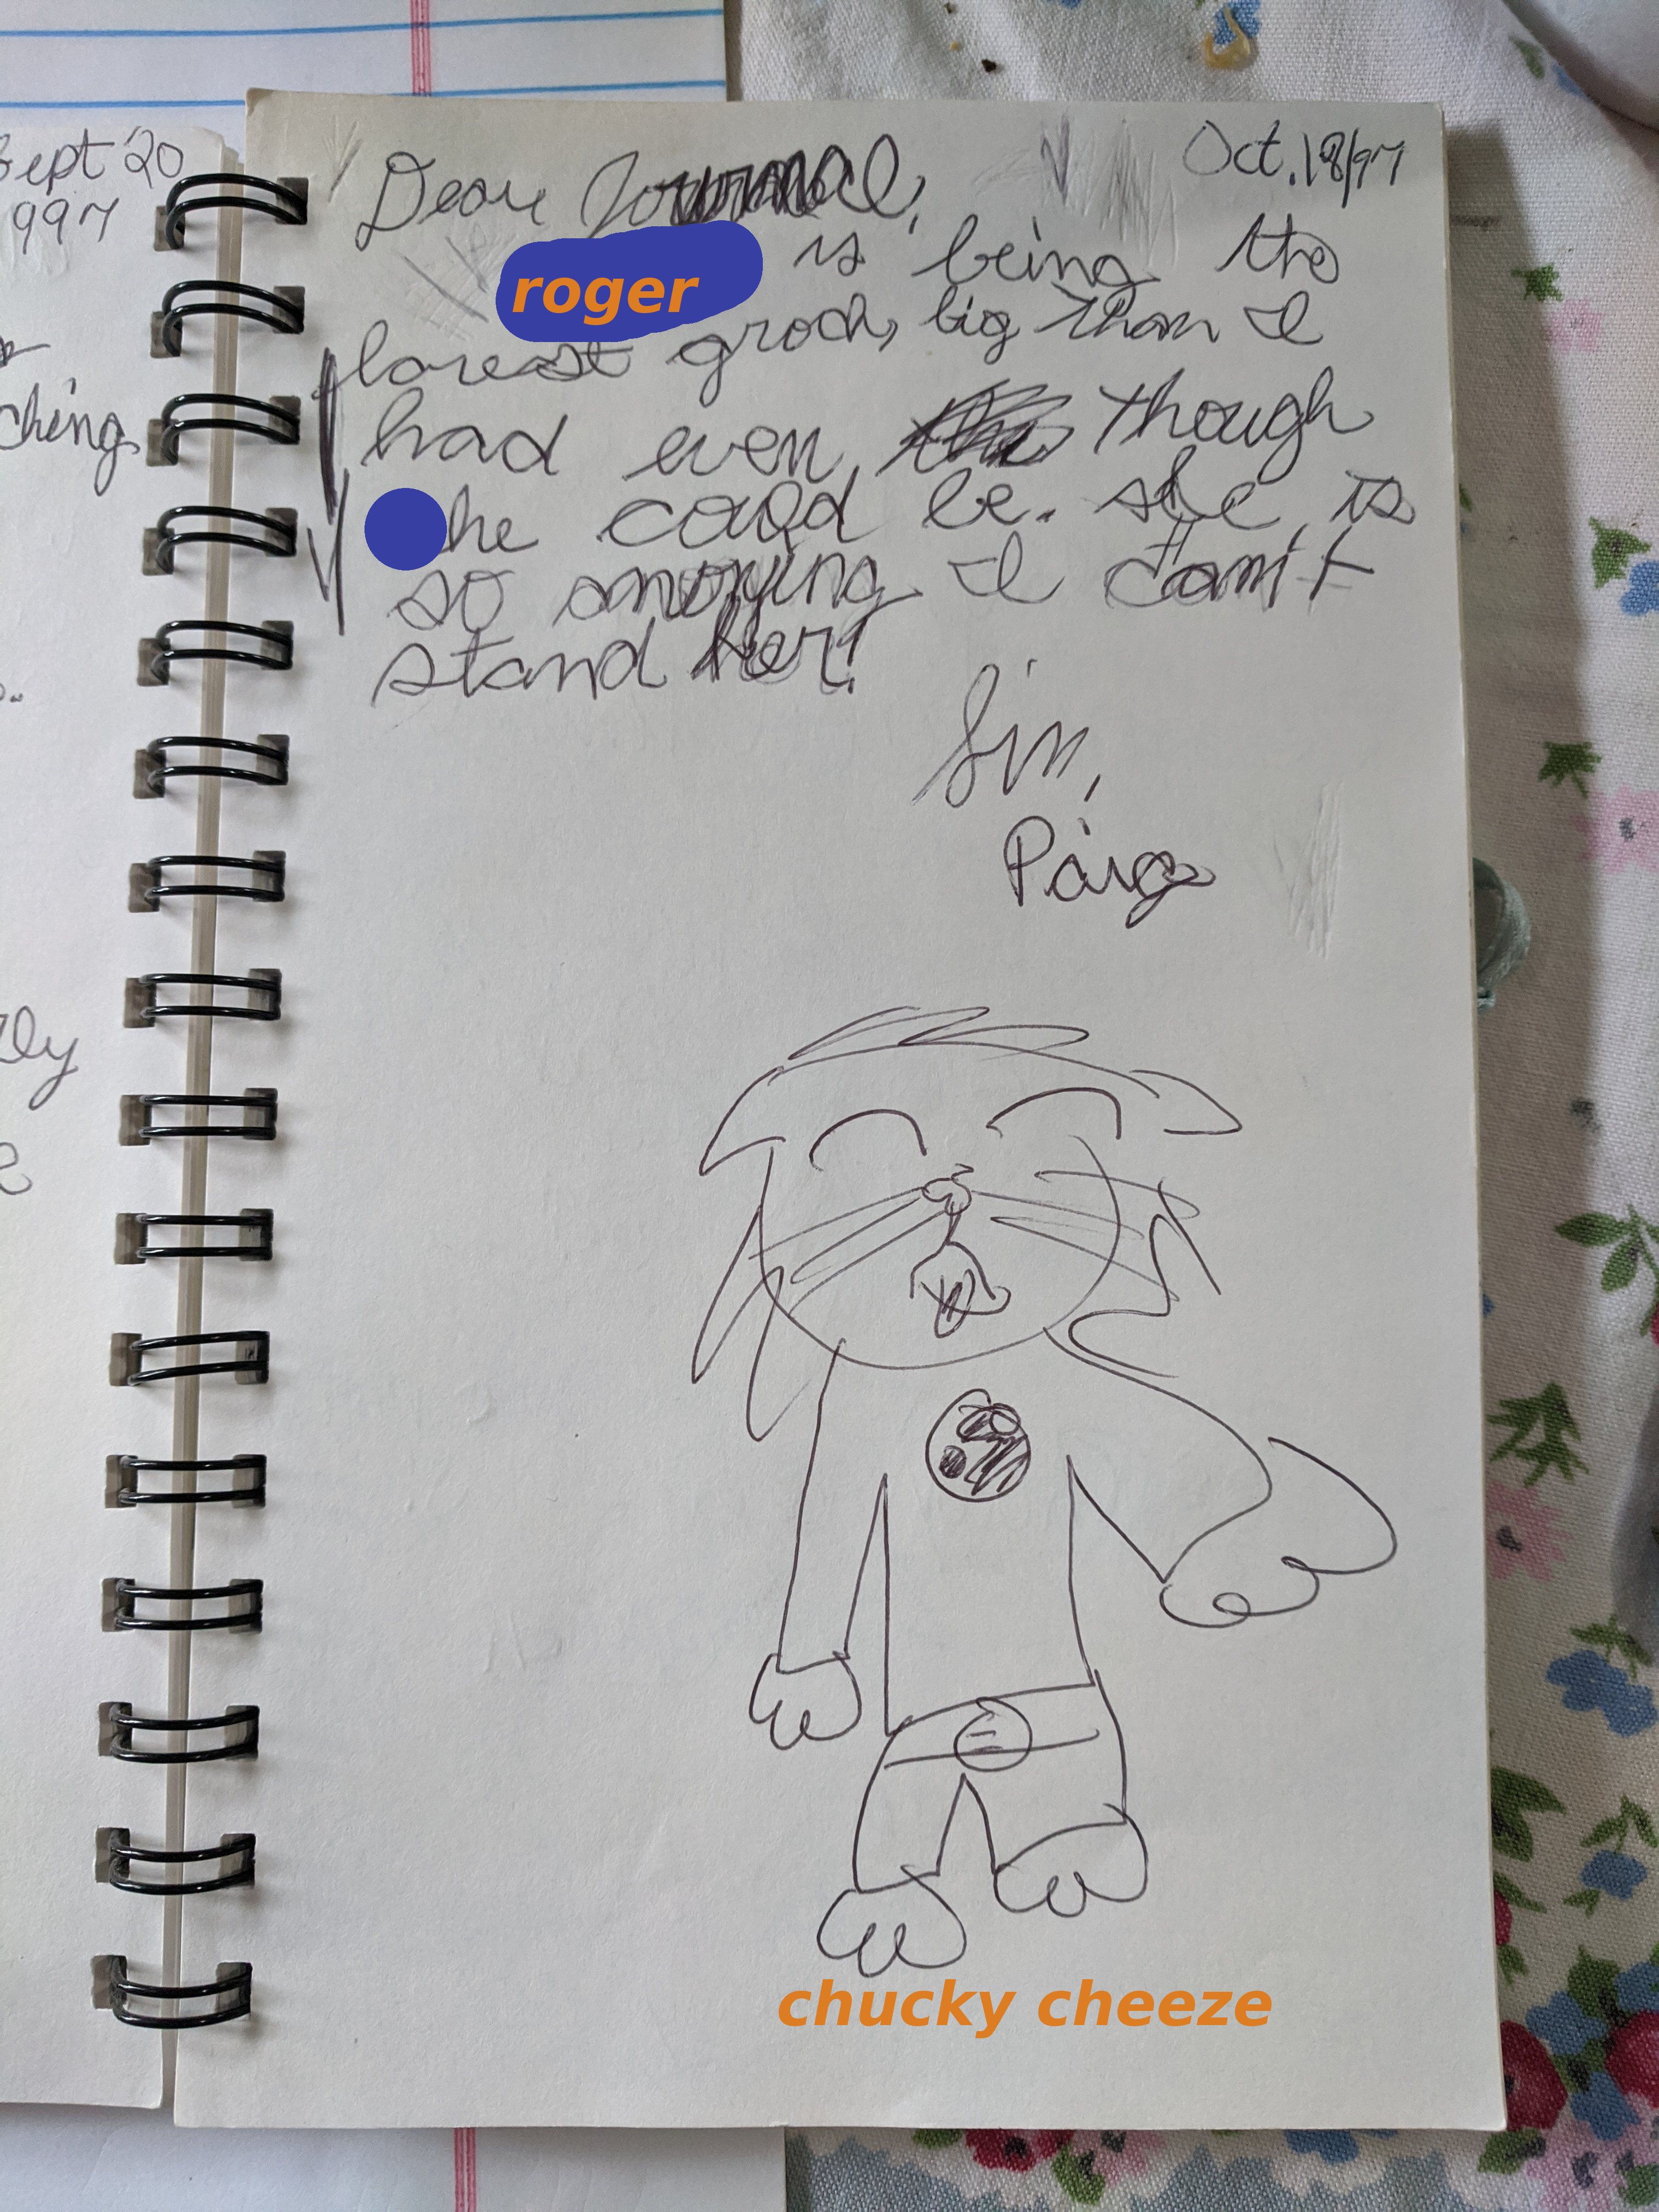 Sept 20
1997
ching
Dear Journal, Oct. 18/97
roger is being the
grock, big than I
had even though
he could be. she is
so anoying I can't
stand her!
Sin,
Paige
chucky cheeze